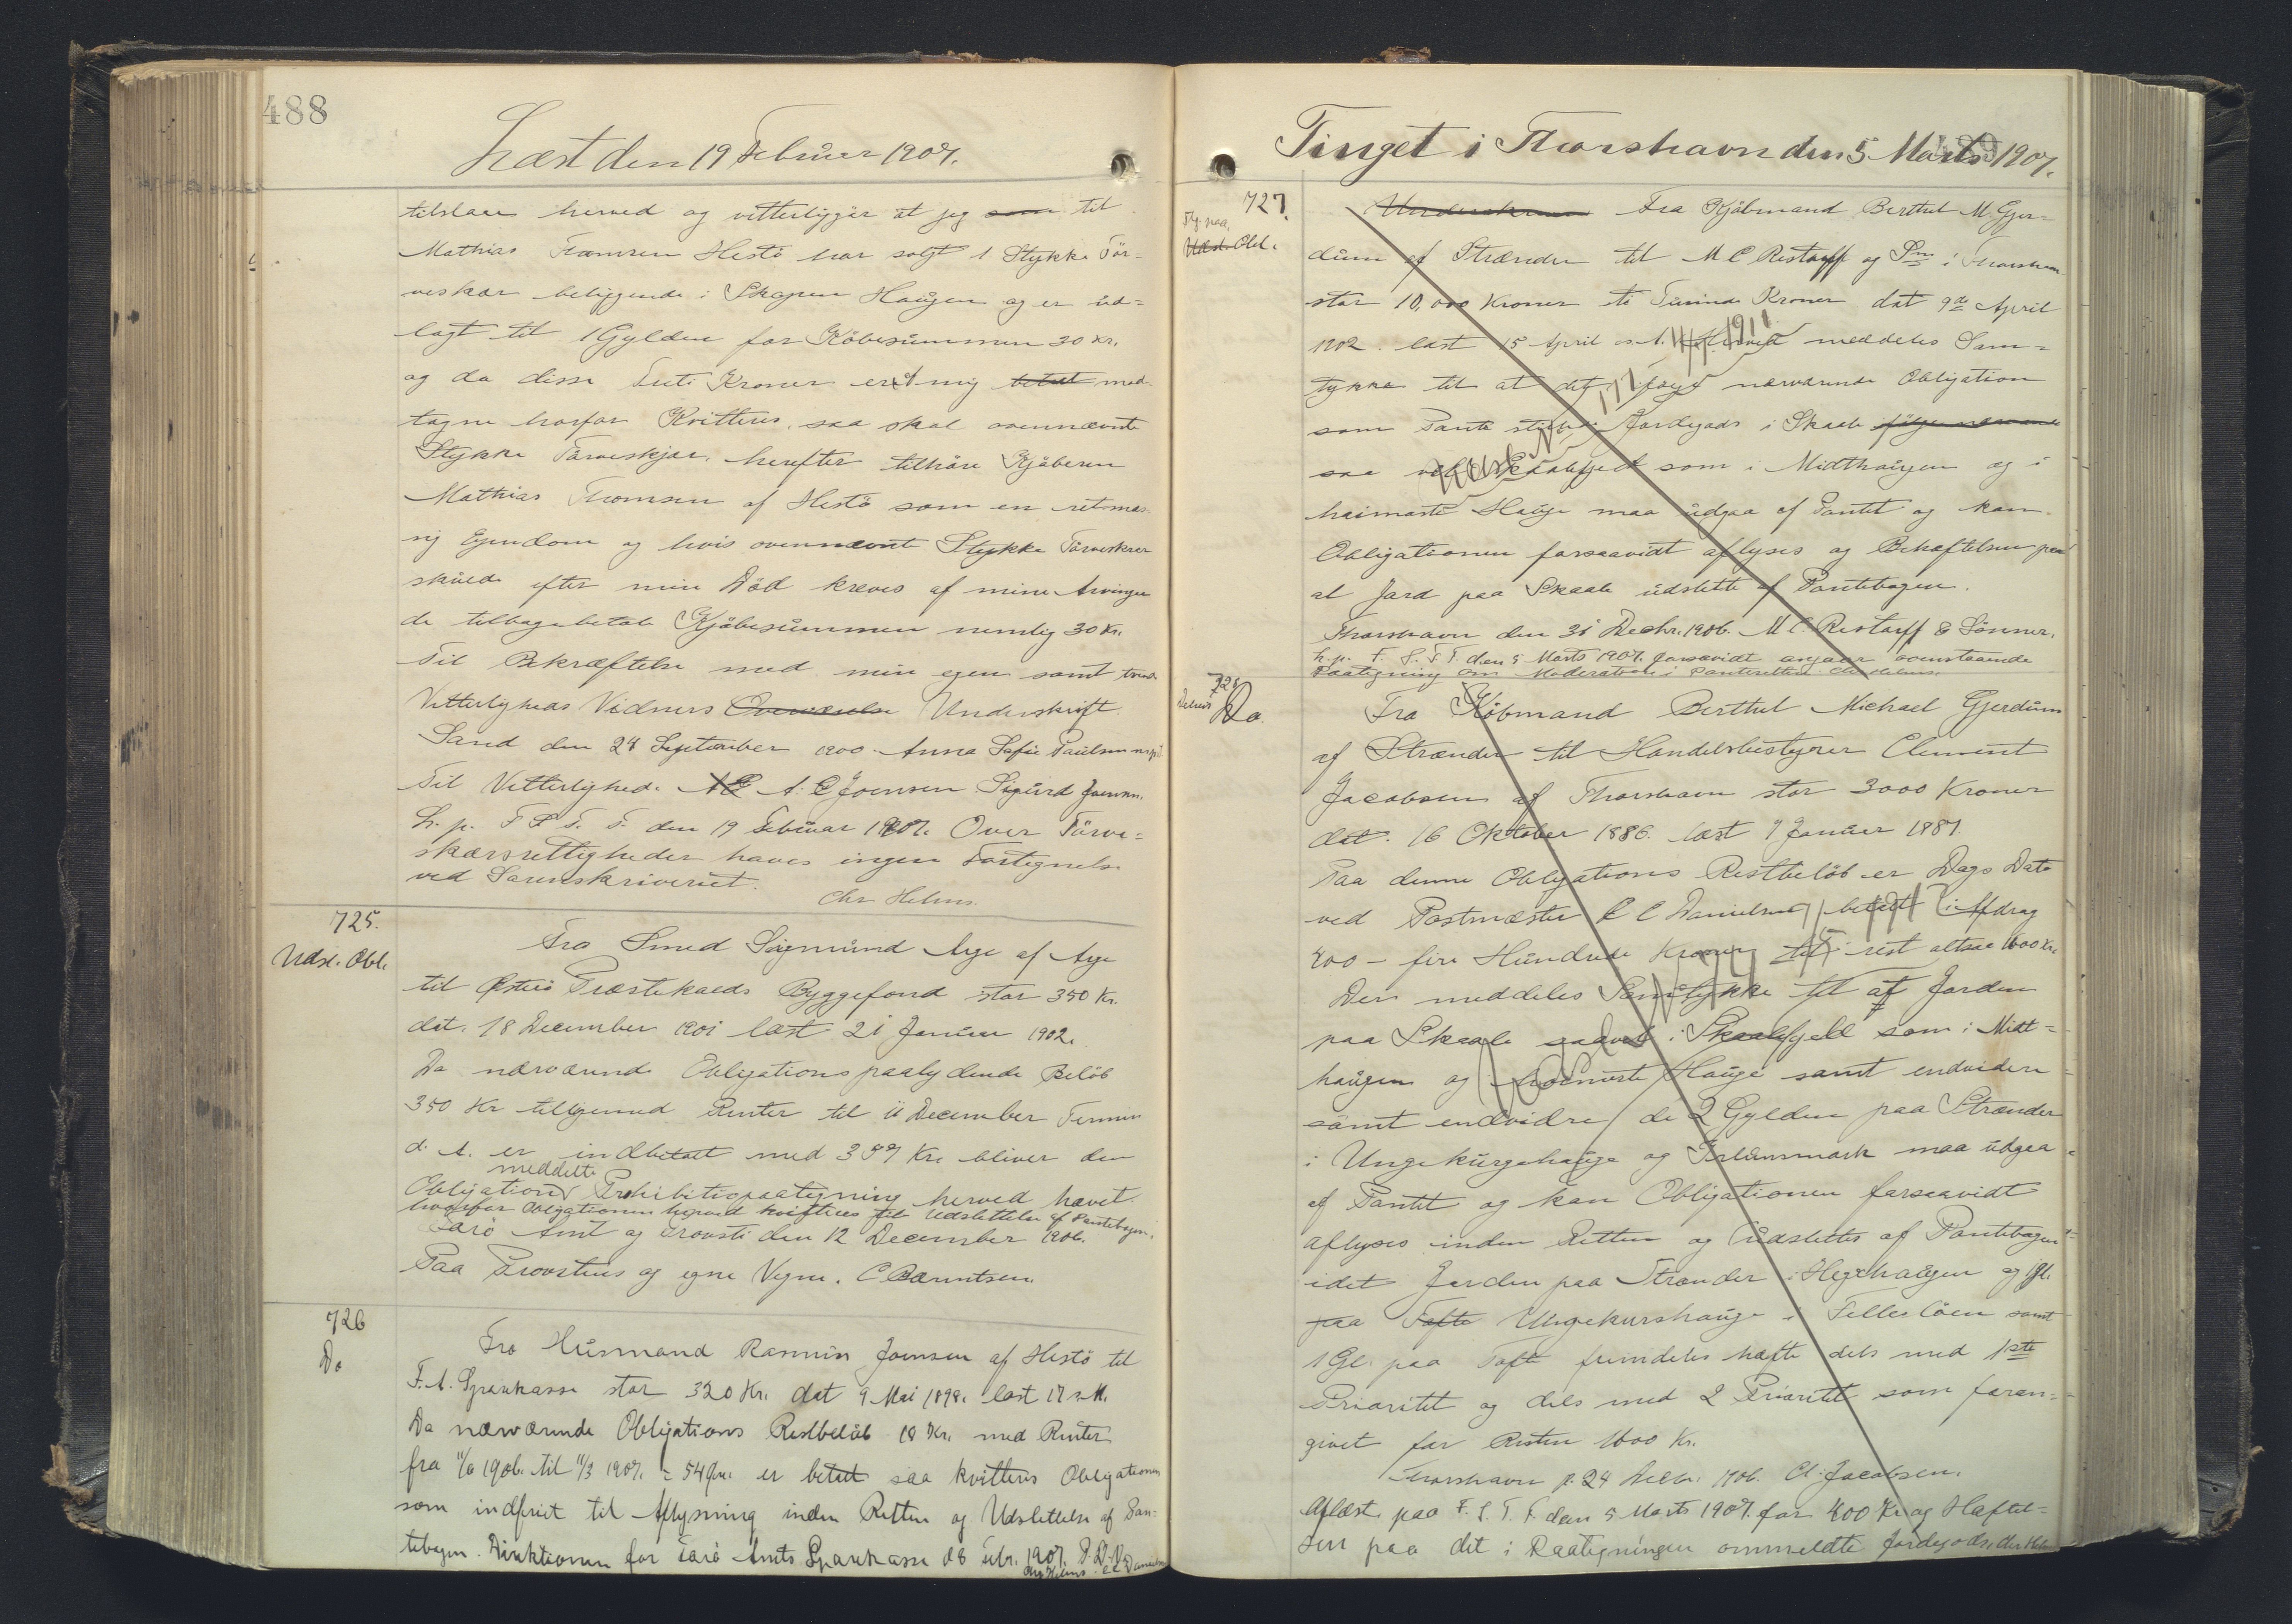 488
Læst den 19 Februar 1907.
tilstaar herved og vitterligger at jeg som til
Mathias Thomsen Hestö har solgt 1 Stykke Tör-
veskær beliggende i Skopun Haugen og er ud-
lagt til 1 Gylden for Köbesummen 30 Kr.
og da disse Kroner er mig betalt mod-
tagne hvorfor Kvitteres, saa skal ovennævnte
Stykke Törveskjær, herefter tilhöre Kjöberen
Mathias Thomsen af Hestö som en retmæs-
sig Ejendom og hvis ovennævnte Stykke Törveskær
skulde efter min Död kræves af mine Arvinger
da tilbagebetale Kjöbesummen nemlig 30 Kr.
Til Bekræftelse med min egen samt tvende
Vitterligheds Vidners Overværelse Underskrift
Sand den 24 September 1900. Anna Sofie Paulsen
Til Vitterlighed. A. C Joensen Sigurd Joensen.
L. p. F S T. F. den 19 Februar 1907. Over Törve-
skærsrettigheder haves ingen Fortegnelse
ved Sorenskriveriet.
Chr Helms.
725.
Udsl. Obl.
Fra Smed Sigmund Aye af Aye
til Østerö Præstekalds Byggefond stor 350 Kr.
dat. 18 December 1901 læst 21 Januar 1902.
Da nærværende Obligations paalydende Beløb
350 Kr tilligemed Renter til 11 December Termin
d. A. er indbetalt med 357 Kr. bliver den
meddelte
Obligation Prohibitivpaategning herved hævet
hvorfor Obligationen herved kvitteres til Udslettelse af Pantebogen.
Færö Amt og Provsti den 12 December 1906.
Paa Provstens og egne Vegne. C Bærentsen.
726
Do
Fra Husmand Rasmus Joensen af Hestö til
F. A. Sparekasse stor 320 Kr. dat 9 Mai 1898. læst 17 s. M.
Da nærværende Obligations Restbelöb 18 Kr. med Renter
fra 11/6 1906. til 11/3 1907. = 54 Øre er betalt saa kvitteres Obligationen
som indfriet til Aflysning inden Retten og Udslettelse af Pan-
tebogen. Direktionen for Færö Amts Sparekasse d 8 Febr. 1907.
Chr Helms. C C Danielsen
Tinget i Thorshavn den 5 Marts 1907.
489
727.
paa
Udsl. Obl.
Underskrevne Fra Kjöbmand Berthel M. Gjer-
dum af Strænder til M C Restorff og Sn i Thorshavn
stor 10,000 Kroner ti Tusinde Kroner dat 9de April
1902. læst 15 April s. A. herved meddeles Sam-
tykke til at det ifølge nærværende Obligation
som Pant stillede Jordegods i Skaale følge nærværende
saa vel i Skaalefjeld som i Midthaugen og i
heimaste Hauge maa udgaa af Pantet og kan
Obligationen forsaavidt aflyses og Behæftelsen paa
al Jord paa Skaale udslettes af Pantebogen.
Thorshavn den 31 Decbr. 1906. M C. Restorff & Sönner.
L. p. F. S. T F. den 5 Marts 1907. forsaavidt angaar ovenstaaende
Paategning om Moderation i Panteretten. Chr Helms.
728
Do.
Fra Köbmand Berthel Michael Gjerdum
af Strænder til Handelsbestyrer Clement
Jacobsen af Thorshavn stor 3000 Kroner
dat. 16 Oktober 1886. læst 7 Januar 1887.
Paa denne Obligations Restbelöb er Dags Dato
ved Postmester C C Danielsen betalt i Afdrag
400 - fire Hundrede Kroner til rest altsaa 1600 Kr.
Der meddeles Samtykke til at Jorden
paa Skaale saavel i Skaalefjeld som i Midt-
haugen og heimaste Hauge samt endvidere
samt endvidre de 2 Gylden paa Strænder
i Ungekurgehauge og maa udgaa
af Pantet og kan Obligationen forsaavidt
aflyses inden Retten og Udslettes af Pantebogen
idet Jorden paa Strænder i Högehaugen og 1 Gl.
paa Tofte Ungekurshauge i samt
1 Gl. paa Toft fremdeles hæfte dels med 1ste
Prioritet og dels med 2 Prioritet som foran-
givet for Resten 1600 Kr.
Thorshavn p. 24 Decbr. 1906. Cl. Jacobsen.
Aflæst paa F. S. T. F. den 5 Marts 1907. for 400 Kr og Hæftel-
sen paa det i Paategningen ommeldte Jordegods. Chr Helms